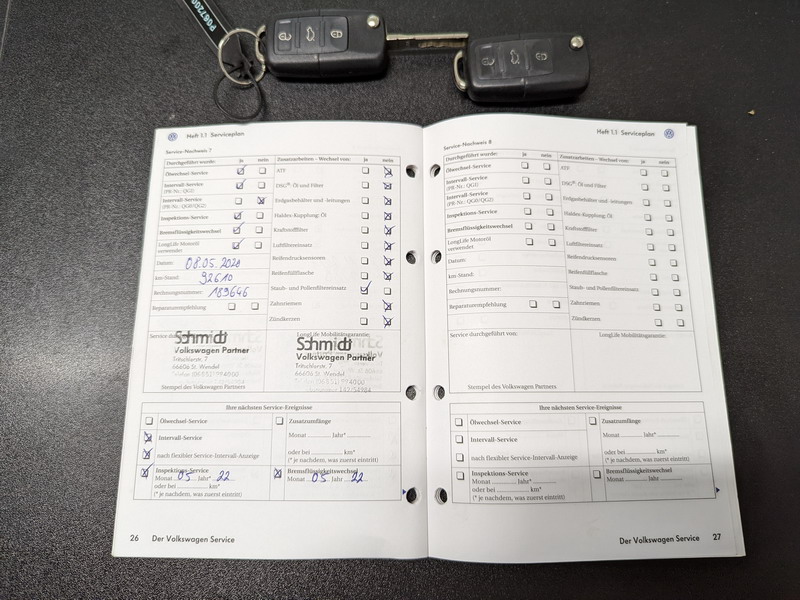 P067200
Heft 1.1 Serviceplan
Service-Nachweis 7
Durchgeführt wurde: ja nein
Ölwechsel-Service
Intervall-Service
(PR-Nr.: QG1)
Intervall-Service
(PR-Nr.: QG0/QG2)
Inspektions-Service
Bremsflüssigkeitswechsel
LongLife Motoröl
verwendet
Datum: 08.05.2020
km-Stand: 92610
Rechnungsnummer: 189646
Reparaturempfehlung
Zusatzarbeiten - Wechsel von: ja nein
ATF
DSG®-Öl und Filter
Erdgasbehälter und -leitungen
Haldex-Kupplung: Öl
Kraftstofffilter
Luftfiltereinsatz
Reifendrucksensoren
Reifenfüllflasche
Staub- und Pollenfiltereinsatz
Zahnriemen
Zündkerzen
Schmidt
Volkswagen Partner
Tritschlerstr. 7
66606 St. Wendel
Stempel des Volkswagen Partners
LongLife Mobilitätsgarantie:
Schmidt
Volkswagen Partner
Tritschlerstr. 7
66606 St. Wendel
Ihre nächsten Service-Ereignisse
Ölwechsel-Service
Intervall-Service
nach flexibler Service-Intervall-Anzeige
Inspektions-Service
Monat 05 Jahr* 22
oder bei km*
(* je nachdem, was zuerst eintritt)
Zusatzumfänge
Monat Jahr*
oder bei km*
(* je nachdem, was zuerst eintritt)
Bremsflüssigkeitswechsel
Monat 05 Jahr 22
26 Der Volkswagen Service
Heft 1.1 Serviceplan
Service-Nachweis 8
Durchgeführt wurde: ja nein
Ölwechsel-Service
Intervall-Service
(PR-Nr.: QG1)
Intervall-Service
(PR-Nr.: QG0/QG2)
Inspektions-Service
Bremsflüssigkeitswechsel
LongLife Motoröl
verwendet
Datum:
km-Stand:
Rechnungsnummer:
Reparaturempfehlung
Zusatzarbeiten - Wechsel von: ja nein
ATF
DSG®-Öl und Filter
Erdgasbehälter und -leitungen
Haldex-Kupplung: Öl
Kraftstofffilter
Luftfiltereinsatz
Reifendrucksensoren
Reifenfüllflasche
Staub- und Pollenfiltereinsatz
Zahnriemen
Zündkerzen
Service durchgeführt von:
Stempel des Volkswagen Partners
LongLife Mobilitätsgarantie:
Ihre nächsten Service-Ereignisse
Ölwechsel-Service
Intervall-Service
nach flexibler Service-Intervall-Anzeige
Inspektions-Service
Monat Jahr*
oder bei km*
(* je nachdem, was zuerst eintritt)
Zusatzumfänge
Monat Jahr*
oder bei km*
(* je nachdem, was zuerst eintritt)
Bremsflüssigkeitswechsel
Monat Jahr
Der Volkswagen Service 27